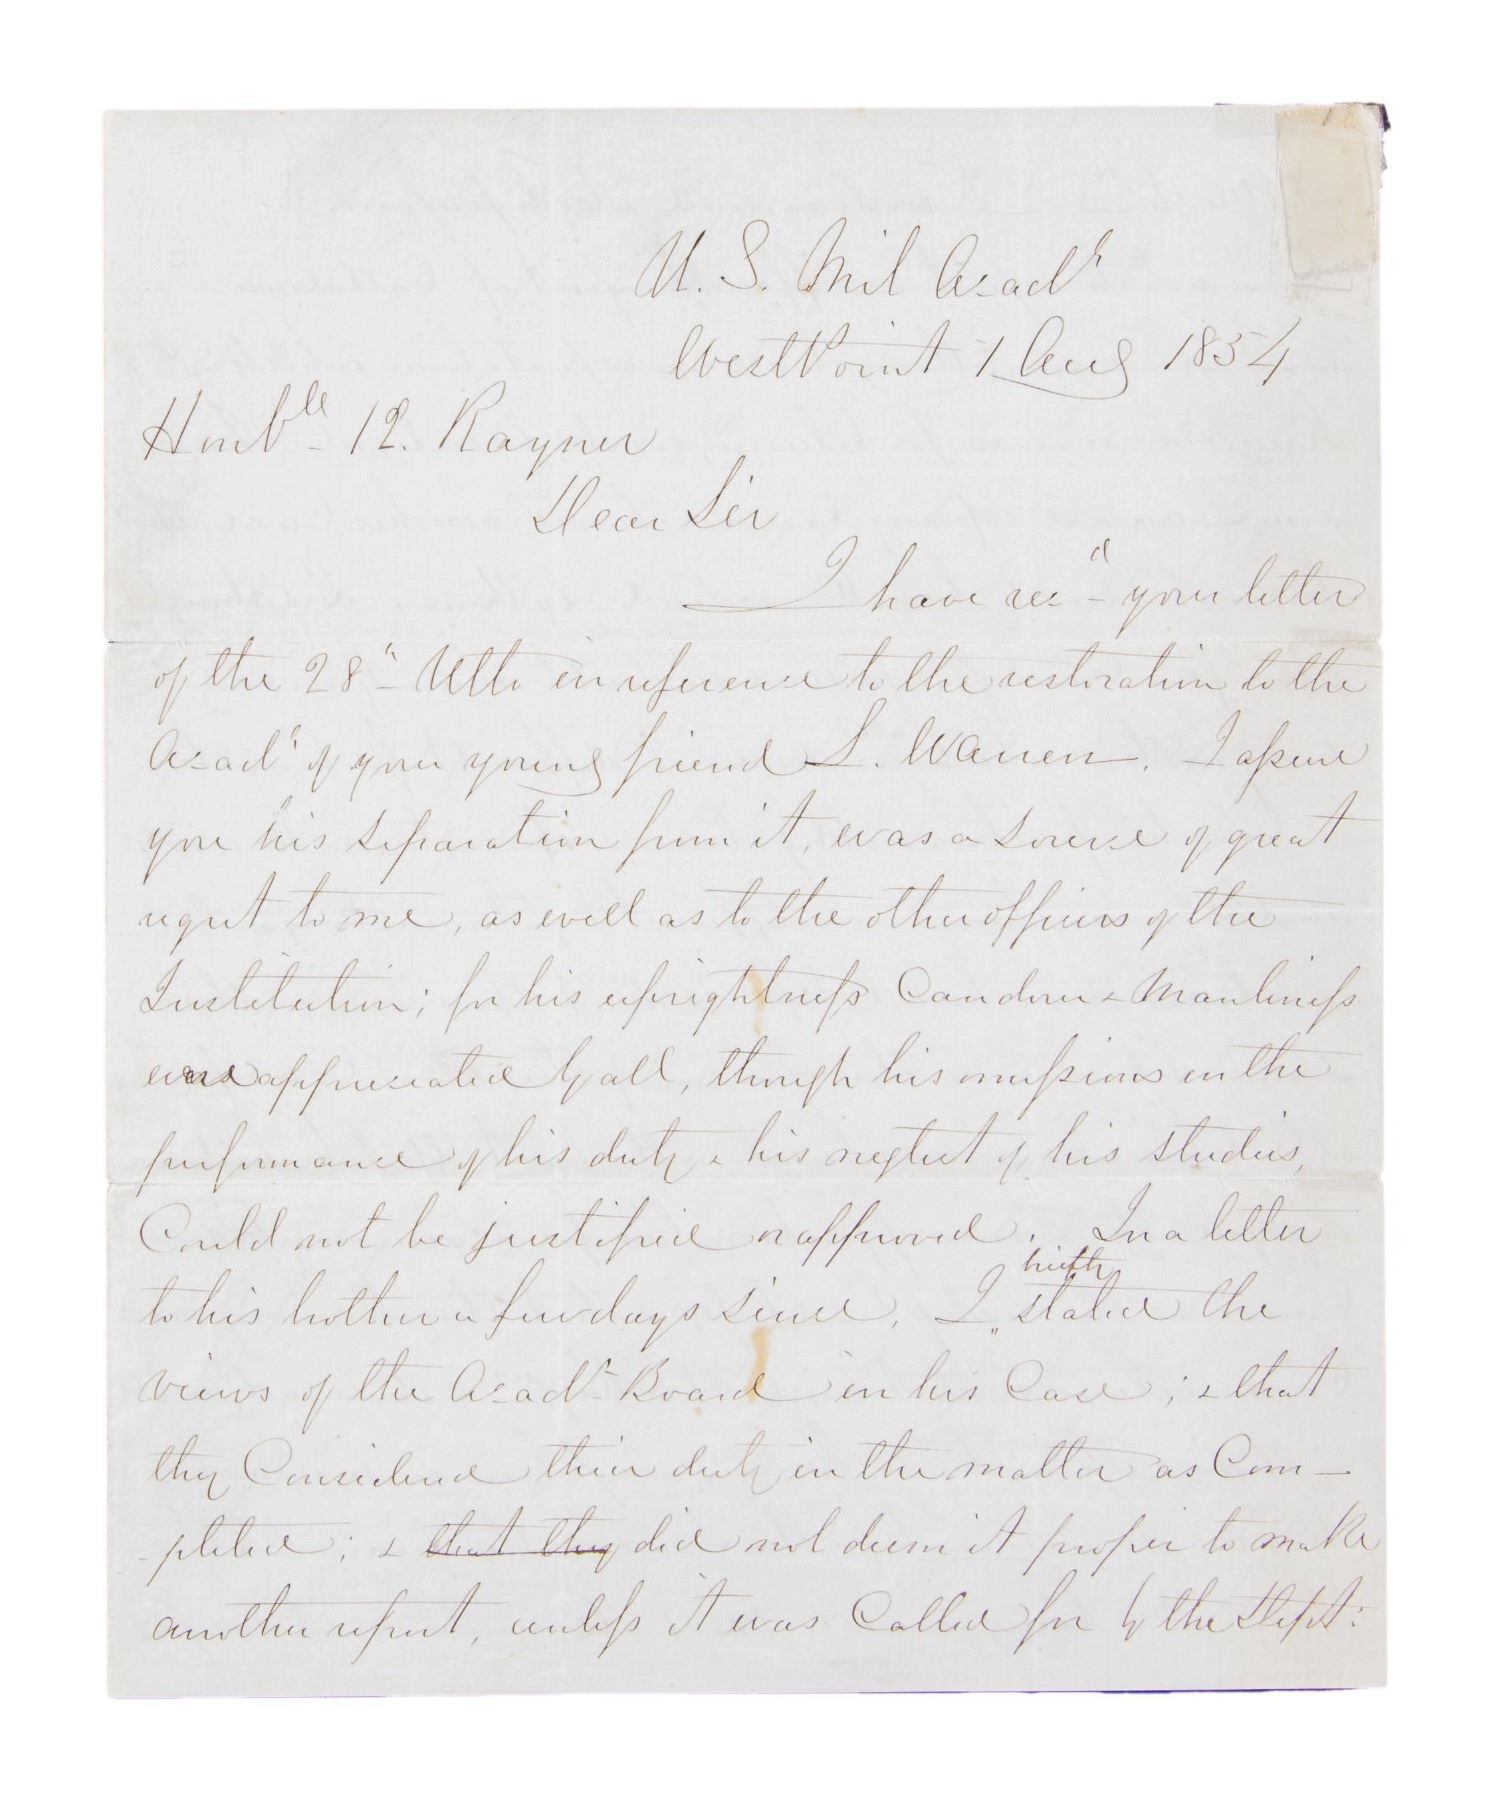 U. S. Mil Acady
West Point 1 Aug 1854
Honble K. Rayner
Dear Sir
I have recd your letter
of the 28" Ulto in reference to the restoration to the
Acady of your young friend S. Warren. I assure
you his separation from it, was a source of great
regret to me, as well as to the other officers of the
Institution; for his uprightness Candour & Manliness
were appreciated by all, though his omissions in the
performance of his duty & his neglect of his studies,
Could not be justified or approved. In a letter
to his brother a few days since, I stated the
views of the Acadc Board in his Case; & that
they Considered their duty in the matter as Com-
-pleted; & that they did not deem it proper to make
another report, unless it was Called for by the Dept: